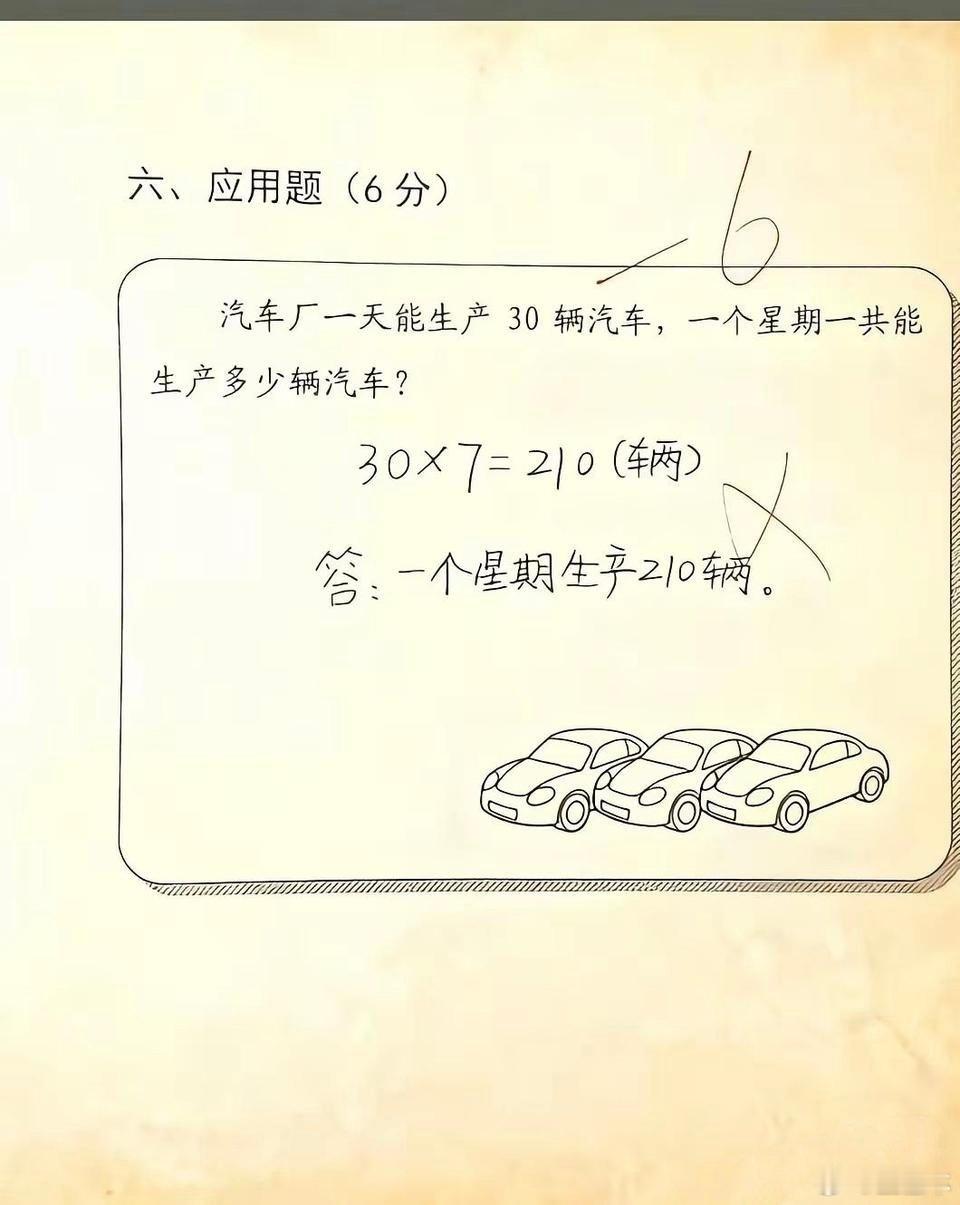 六、应用题（6分）
-6
汽车厂一天能生产 30 辆汽车，一个星期一共能
生产多少辆汽车？
30×7=210(辆)
答：一个星期生产210辆。